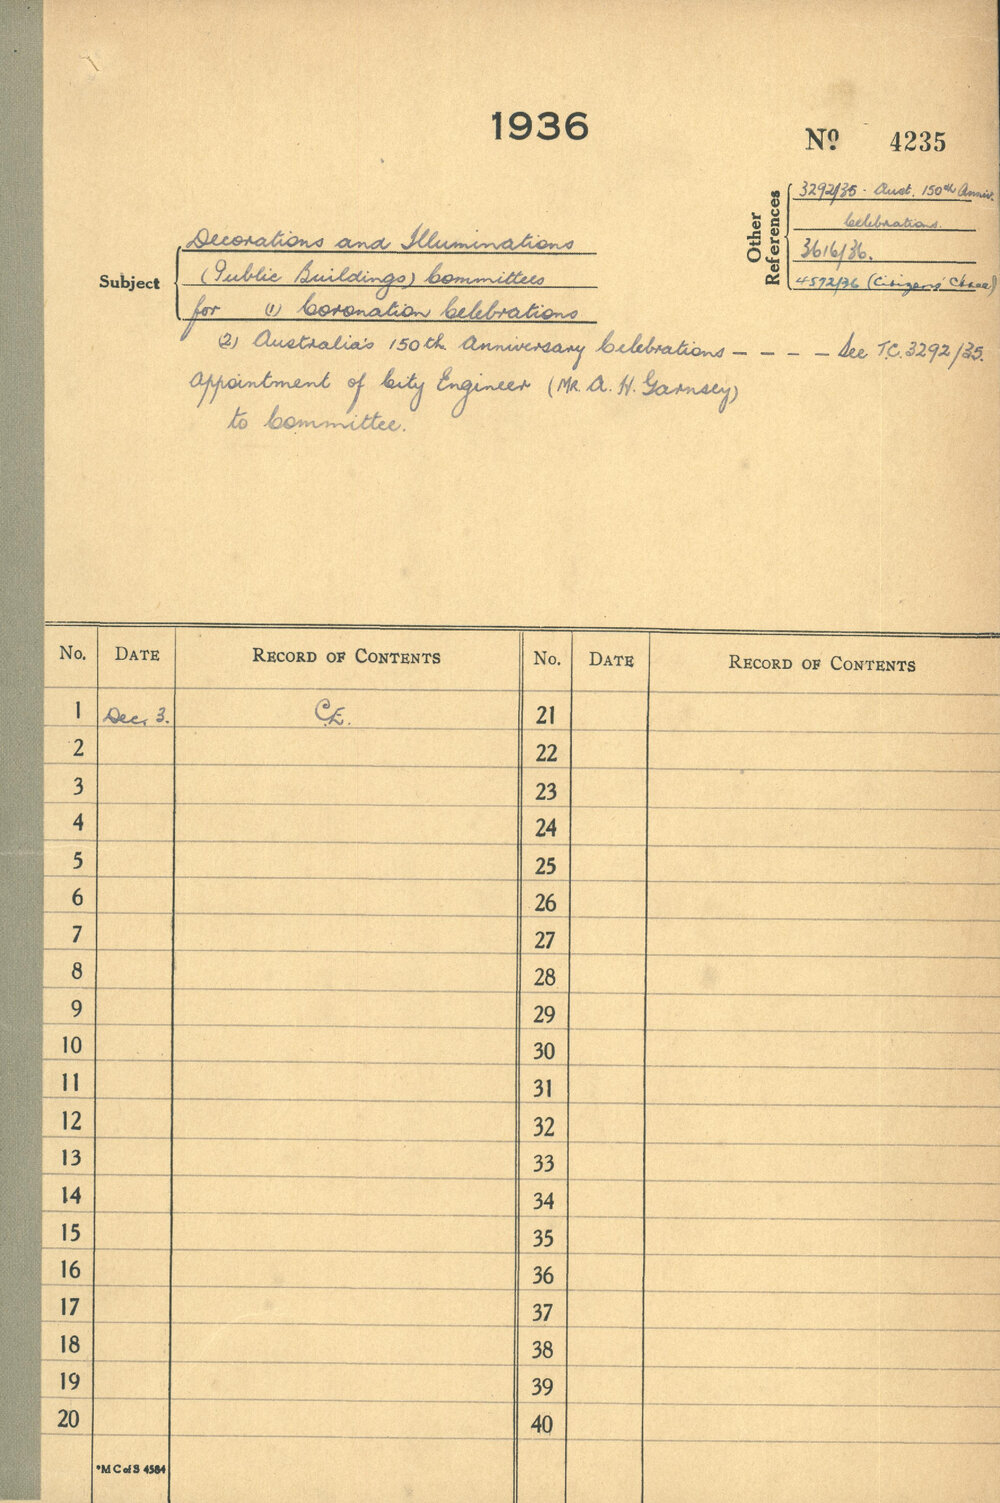 1936
No 4235
Other References
3292/35 - Aust. 150th Anniv.
Celebrations.
3616/36.
4592/36 (Citizens'
Subject
Decorations and Illuminations
(Public Buildings) Committees
for (1) Coronation Celebrations
(2) Australia's 150th Anniversary Celebrations - - - - See T.C. 3292/35.
Appointment of City Engineer (Mr. A. H. Garnsey)
to Committee.
No. DATE RECORD OF CONTENTS No. DATE RECORD OF CONTENTS
1 Dec. 3. C.E. 21
2 22
3 23
4 24
5 25
6 26
7 27
8 28
9 29
10 30
11 31
12 32
13 33
14 34
15 35
16 36
17 37
18 38
19 39
20 40
*M C of S 4584